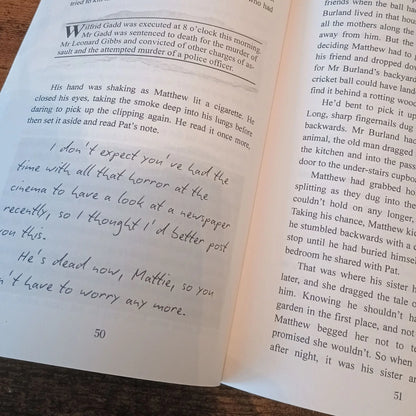 tried to
who had
Wilfrid Gadd was executed at 8 o'clock this morning.
Mr Gadd was sentenced to death for the murder of
Mr Leonard Gibbs and convicted of other charges of as-
sault and the attempted murder of a police officer.
His hand was shaking as Matthew lit a cigarette. He
closed his eyes, taking the smoke deep into his lungs before
daring to pick up the clipping again. He read it once more,
then set it aside and read Pat's note.
I don't expect you've had the
time with all that horror at the
cinema to have a look at a newspaper
recently, so I thought I'd better post
you this.
He's dead now, Mattie, so you
n't have to worry any more.
50
friends when the ball ha
Burland lived in that hou
all the mothers along the
away from him. But the
deciding Matthew had to
his friend and dropped down
for Mr Burland's backyard
cricket ball could have land
find it behind a rotting woo
He'd bent to pick it up
Long, sharp fingernails deg
backwards. Mr Burland had
animal, the old man dragged
the kitchen and into the pass
door to the under-stairs cupbo
Matthew had grabbed ho
splitting as they dug into the
couldn't hold on any longer,
Taking his chance, Matthew kic
he stumbled backwards with a c
stop until he had buried himsel
bedroom he shared with Pat.
That was where his sister h
later, and she dragged the tale o
him. Knowing he shouldn't ha
garden in the first place, and not
Matthew begged her not to te
promised she wouldn't. So when
after night, it was his sister an
51